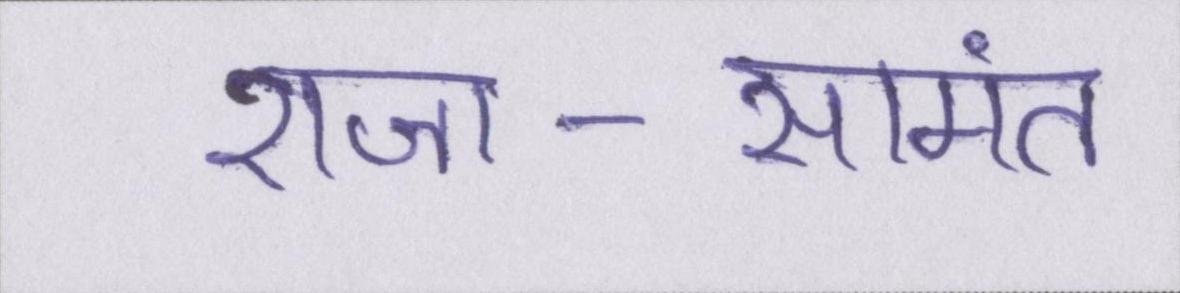 राजा - सामंत